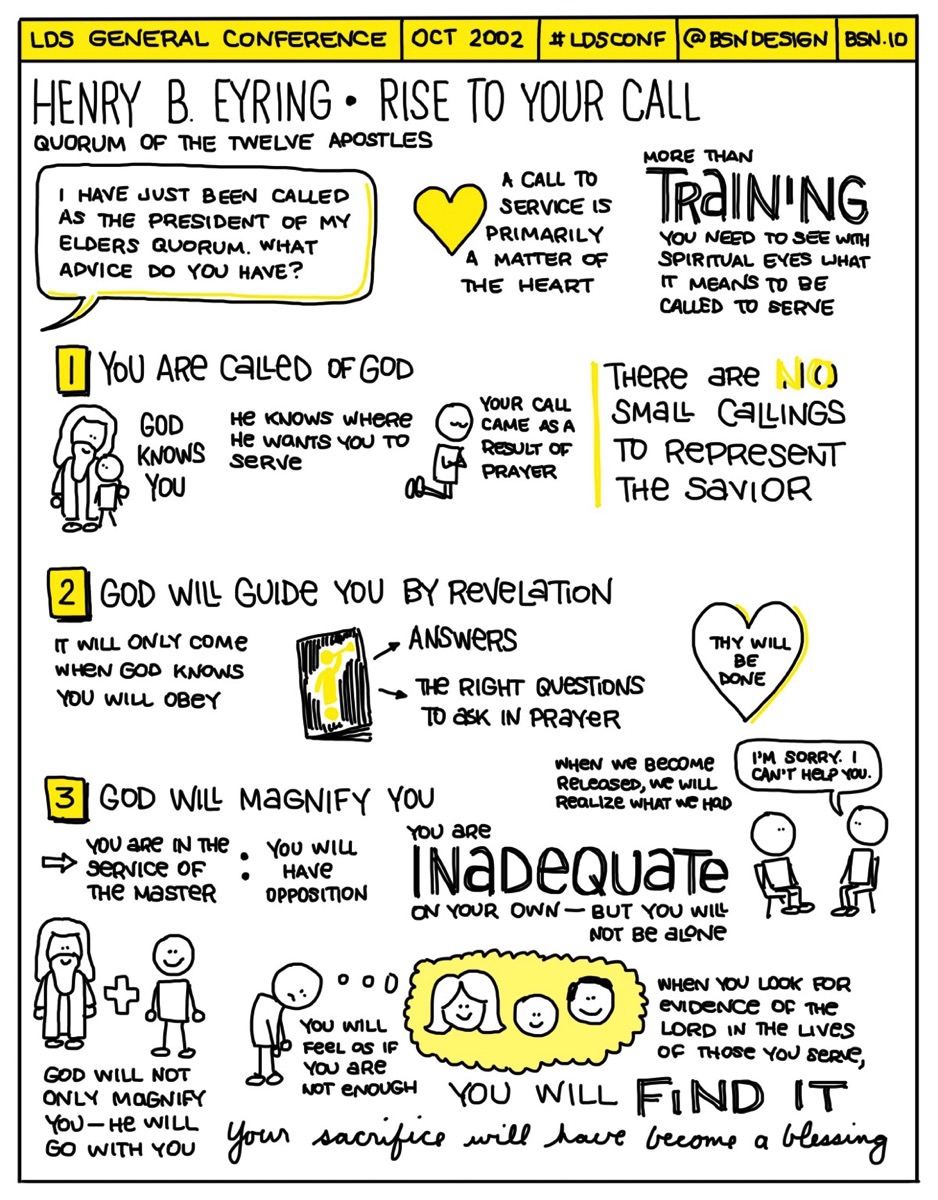 LDS GENERAL CONFERENCE
OCT 2002
#LDSCONF
@BSNDESIGN
BSN.IO
HENRY B. EYRING • RISE TO YOUR CALL
QUORUM OF THE TWELVE APOSTLES
I HAVE JUST BEEN CALLED
AS THE PRESIDENT OF MY
ELDERS QUORUM. WHAT
ADVICE DO YOU HAVE?
A CALL TO
SERVICE IS
PRIMARILY
A MATTER OF
THE HEART
MORE THAN
TRAINING
YOU NEED TO SEE WITH
SPIRITUAL EYES WHAT
IT MEANS TO BE
CALLED TO SERVE
1 YOU ARE CALLED OF GOD
GOD
KNOWS
YOU
HE KNOWS WHERE
HE WANTS YOU TO
SERVE
YOUR CALL
CAME AS A
RESULT OF
PRAYER
THERE ARE NO
SMALL CALLINGS
TO REPRESENT
THE SAVIOR
2 GOD WILL GUIDE YOU BY REVELATION
IT WILL ONLY COME
WHEN GOD KNOWS
YOU WILL OBEY
ANSWERS
THE RIGHT QUESTIONS
TO ASK IN PRAYER
THY WILL
BE
DONE
3 GOD WILL MAGNIFY YOU
WHEN WE BECOME
RELEASED, WE WILL
REALIZE WHAT WE HAD
I'M SORRY. I
CAN'T HELP YOU.
YOU ARE IN THE
SERVICE OF
THE MASTER
:
YOU WILL
HAVE
OPPOSITION
YOU ARE
INADEQUATE
ON YOUR OWN — BUT YOU WILL
NOT BE ALONE
GOD WILL NOT
ONLY MAGNIFY
YOU — HE WILL
GO WITH YOU
YOU WILL
FEEL AS IF
YOU ARE
NOT ENOUGH
WHEN YOU LOOK FOR
EVIDENCE OF THE
LORD IN THE LIVES
OF THOSE YOU SERVE,
YOU WILL FIND IT
Your sacrifice will have become a blessing